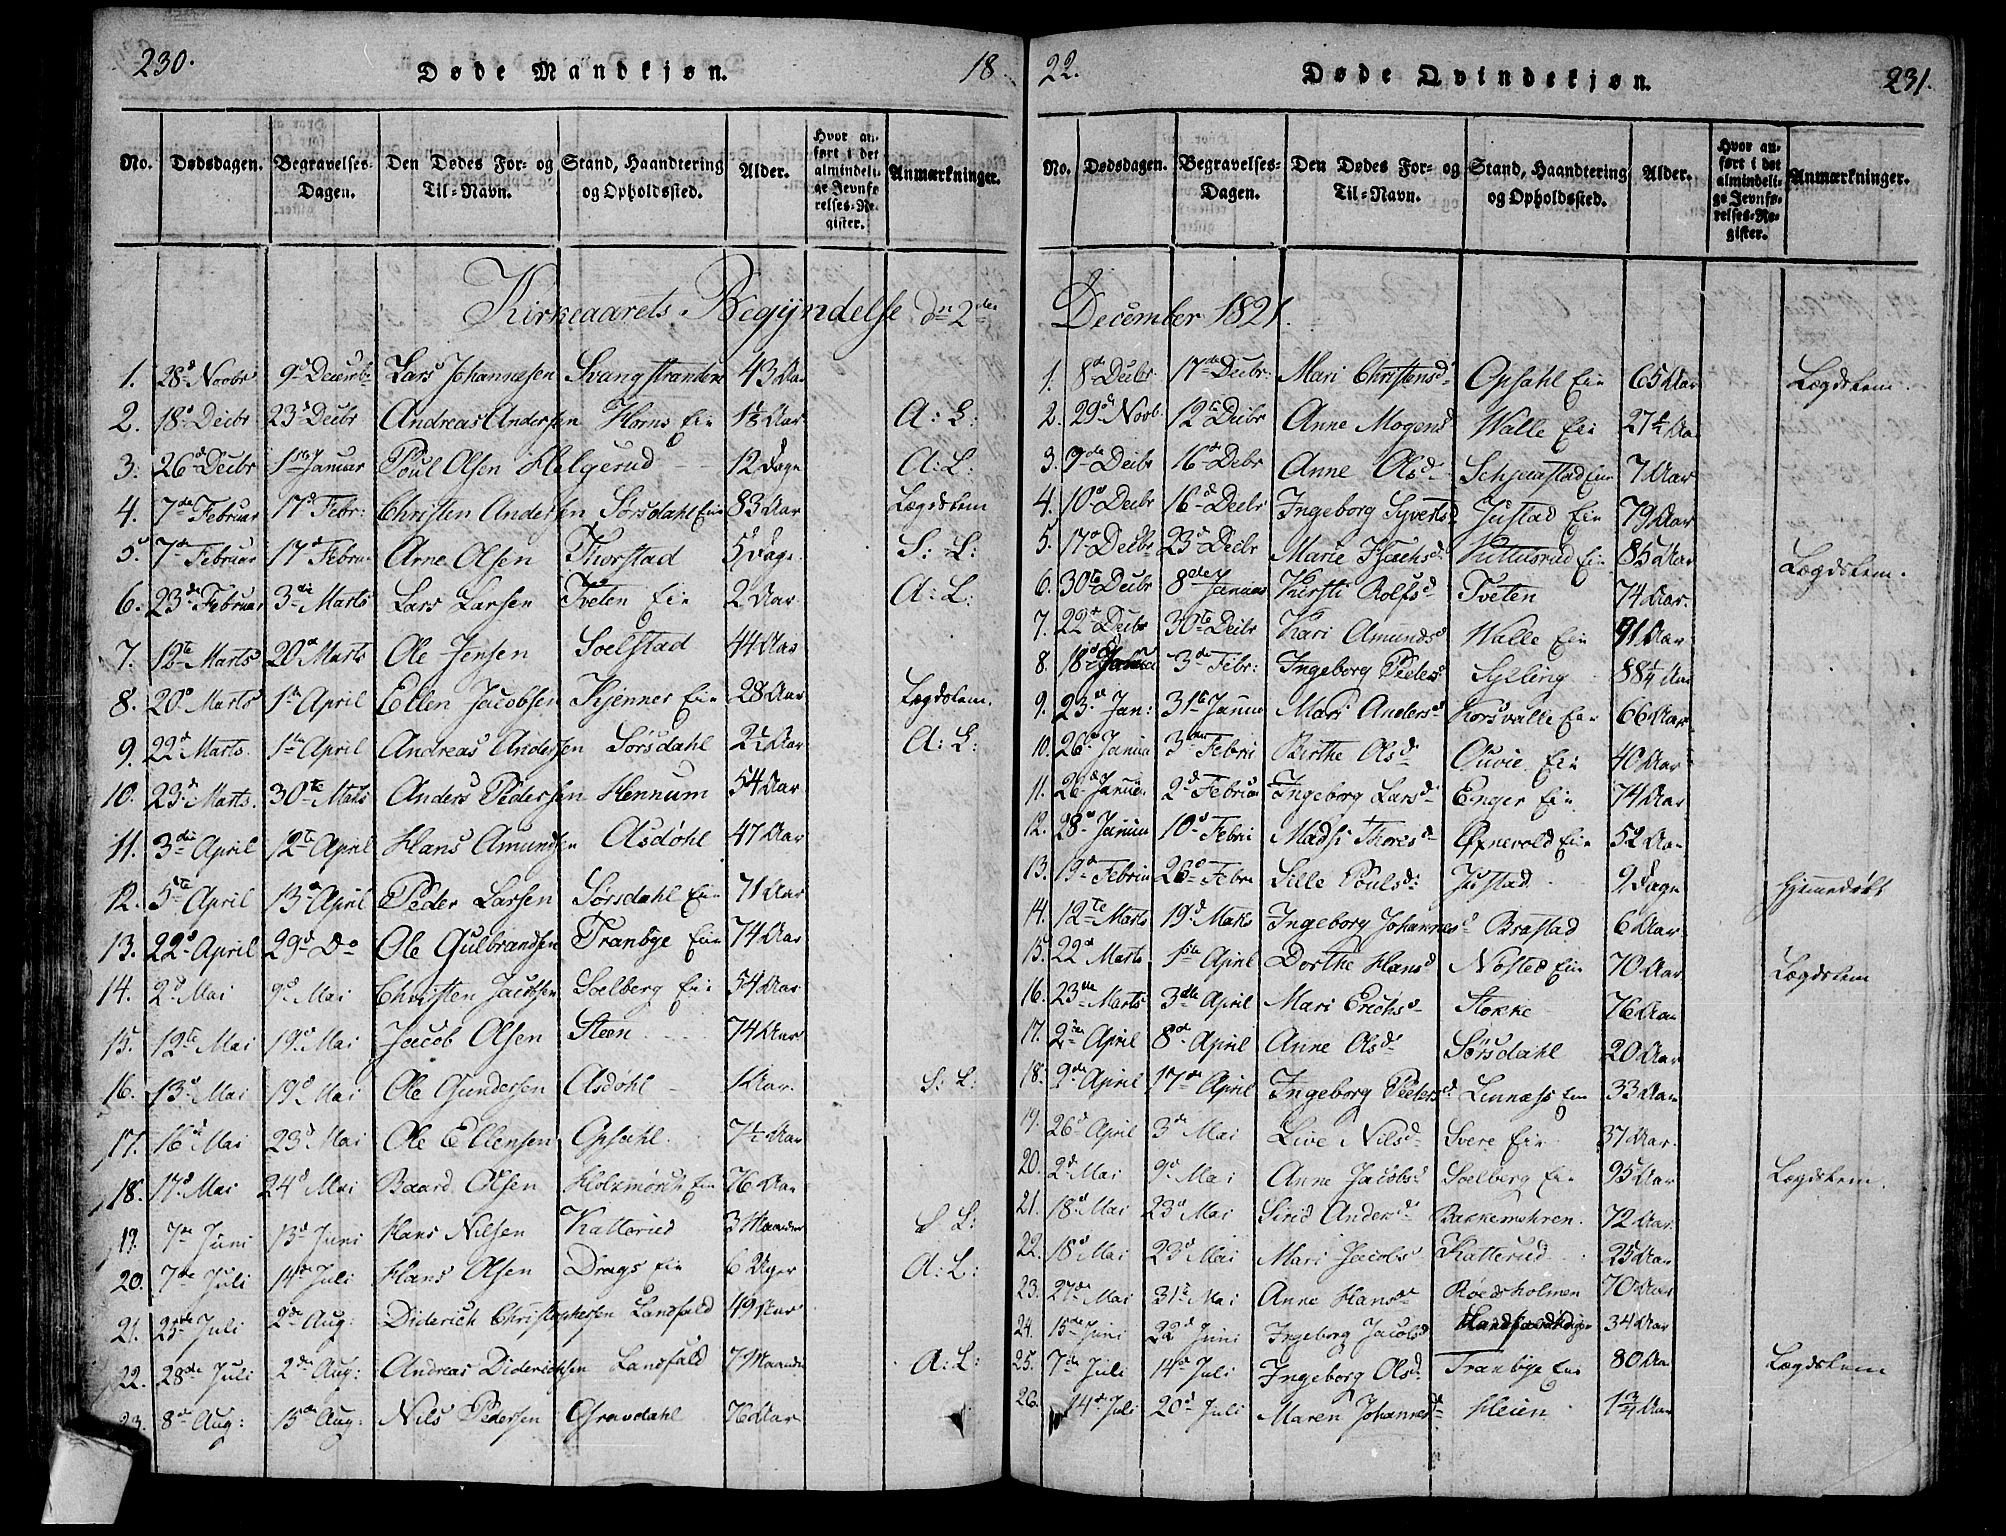 230.
Døde Mandkjøn.
18
No. Dødsdagen. Begravelses-Dagen. Den Dødes For- og Til-Navn. Stand, Haandtering og Opholdssted. Alder. Hvor anført i det almindelige Jevnførelses-Register. Anmærkninger.
Kirkeaarets Begÿndelse dn 2den
1. 28d Novbr 9d Decemb Lars Johannesen Svangstranden 43 Aar
2. 18d Decbr 23d Decbr Andreas Andersen Horns Eie 1½ Aar A: L:
3. 26d Decbr 1ste Januar Poul Olsen Helgerud 12 Dage A: L:
4. 7de Februar 17d Febr: Christen Andersen Sørsdahl Eie 83 Aar Lægdslem
5. 7de Februar 17d Februar Arne Olsen Thorstad 5 Dage S: L:
6. 23de Februar 3die Marts Lars Larsen Tveten Eie 2 Aar A: L:
7. 12te Marts 20d Marts Ole Jensen Soelstad 44 Aar
8. 20d Marts 1ste April Ellen Jacobsen Kjenner Eie 28 Aar Lægdslem.
9. 22d Marts. 1ste April Andreas Andersen Sørsdahl 2½ Aar A: L:
10. 23d Marts. 30te Marts Anders Pedersen Hennum 54 Aar
11. 3die April 12te April Hans Amundsen Asdøhl 47 Aar
12. 5te April 13d April Peder Larsen Sørsdahl Eie 71 Aar
13. 22d April 29d Do Ole Gulbrandsen Tranbye Eie 74 Aar
14. 2d Mai 9d Mai Christen Jacobsen Soelberg Eie 54 Aar
15. 12te Mai 19d Mai Jacob Olsen Steen 74 Aar
16. 13d Mai 19d Mai Ole Gundersen Asdøhl 1 Aar. S: L:
17. 16d Mai 23d Mai Ole Ellensen Opsahl. 7½ Aar
18. 17d Mai 24d Mai Baard Olsen Holtzmørk Eie 76 Aar
19. 7de Juni 13d Juni Hans Nilsen Katterud 3 Maaneder S L:
20. 7de Juli 14de Juli Hans Olsen Drags Eie 6 Uger A: L:
21. 25de Juli 2de Aug: Diderich Christophersen Landfald 49 Aar
22. 28de Juli 2de Aug: Andreas Diderichsen Landfald 7 Maaneder A: L:
23. 8de Aug: 15de Aug: Nils Pedersen Gravdahl 76 Aar
22.
Døde Qvindekjøn.
231.
No. Dødsdagen. Begravelses-Dagen. Den Dødes For- og Til-Navn. Stand, Haandtering og Opholdssted. Alder. Hvor anført i det almindelige Jevnførelses-Register. Anmærkninger.
December 1821.
1. 8de Decbr 17de Decbr: Mari Christensd Opsahl Eie 65 Aar Lægdslem.
2. 29d Novb. 12te Decbr Anne Mogensd Walle Eie 27½ Aar
3. 7de Decbr 16d Debr Anne Olsd Eie 7 Aar
4. 10d Decbr 16d Decbr Ingeborg Syvertsd Justad Eie 79 Aar
5. 17d Decbr 23d Decbr Marie Eie 85 Aar Lægdslem.
6. 30te Decbr 8de Januar Kirsti Rolfsd Tveten 74 Aar.
7. 22d Decbr 30te Decbr Kari Amundsd Walle Eie 91 Aar
8. 18d 3de Febr: Ingeborg Peders Sylling 88½ Aar
9. 23d Jan: 31te Januar Mari Andersd Korsvalle Eie 66 Aar
10. 26d Janua 3die Febru Birthe Olsd Ouvie Eie 40 Aar
11. 26d Januar 2d Februar Ingeborg Larsd Enger Eie 74 Aar
12. 28d Janua 10d Febru Madsi Thoresd Øfnevold Eie 52 Aar
13. 19d Febru 26d Febru Sille Poulsd: Justad 9 Dage Hjemmedøbt
14. 12te Marts 19d Marts Ingeborg Johannesd Brastad 6 Aar
15. 22d Marts 1ste April Dorthe Hansd Nøsted Eie 70 Aar Lægdslem
16. 23de Marts 3die April Mari Erichsd Stokke 76 Aar
17. 2den April 8de April Anne Olsd Sørsdahl 20 Aar
18. 9de April 17de April Ingeborg Pedersd Linnæss Eie 33 Aar
19. 26d April 3de Mai Live Nilsd Svere Eie 37 Aar.
20. 2d Mai 9d Mai Anne Jacobsd Soelberg Eie 95 Aar Lægdslem.
21. 18d Mai 23d Mai Sirid Andersd Bakkemohren. 72 Aar.
22. 18d Mai 23d Mai Mari Jacobsd Katterud 25 Aar
23. 27de Mai 31te Mai Anne Hansd Rødsholmen 70 Aar
24. 15de Juni 22d Juni Ingeborg Jacobsd 34 Aar
25. 7de Juli 14de Juli Ingeborg Olsd Tranbye Eie 80 Aar Lægdslem
26. 14d Juli 20d Juli Maren Johannesd Heien 1¾ Aar